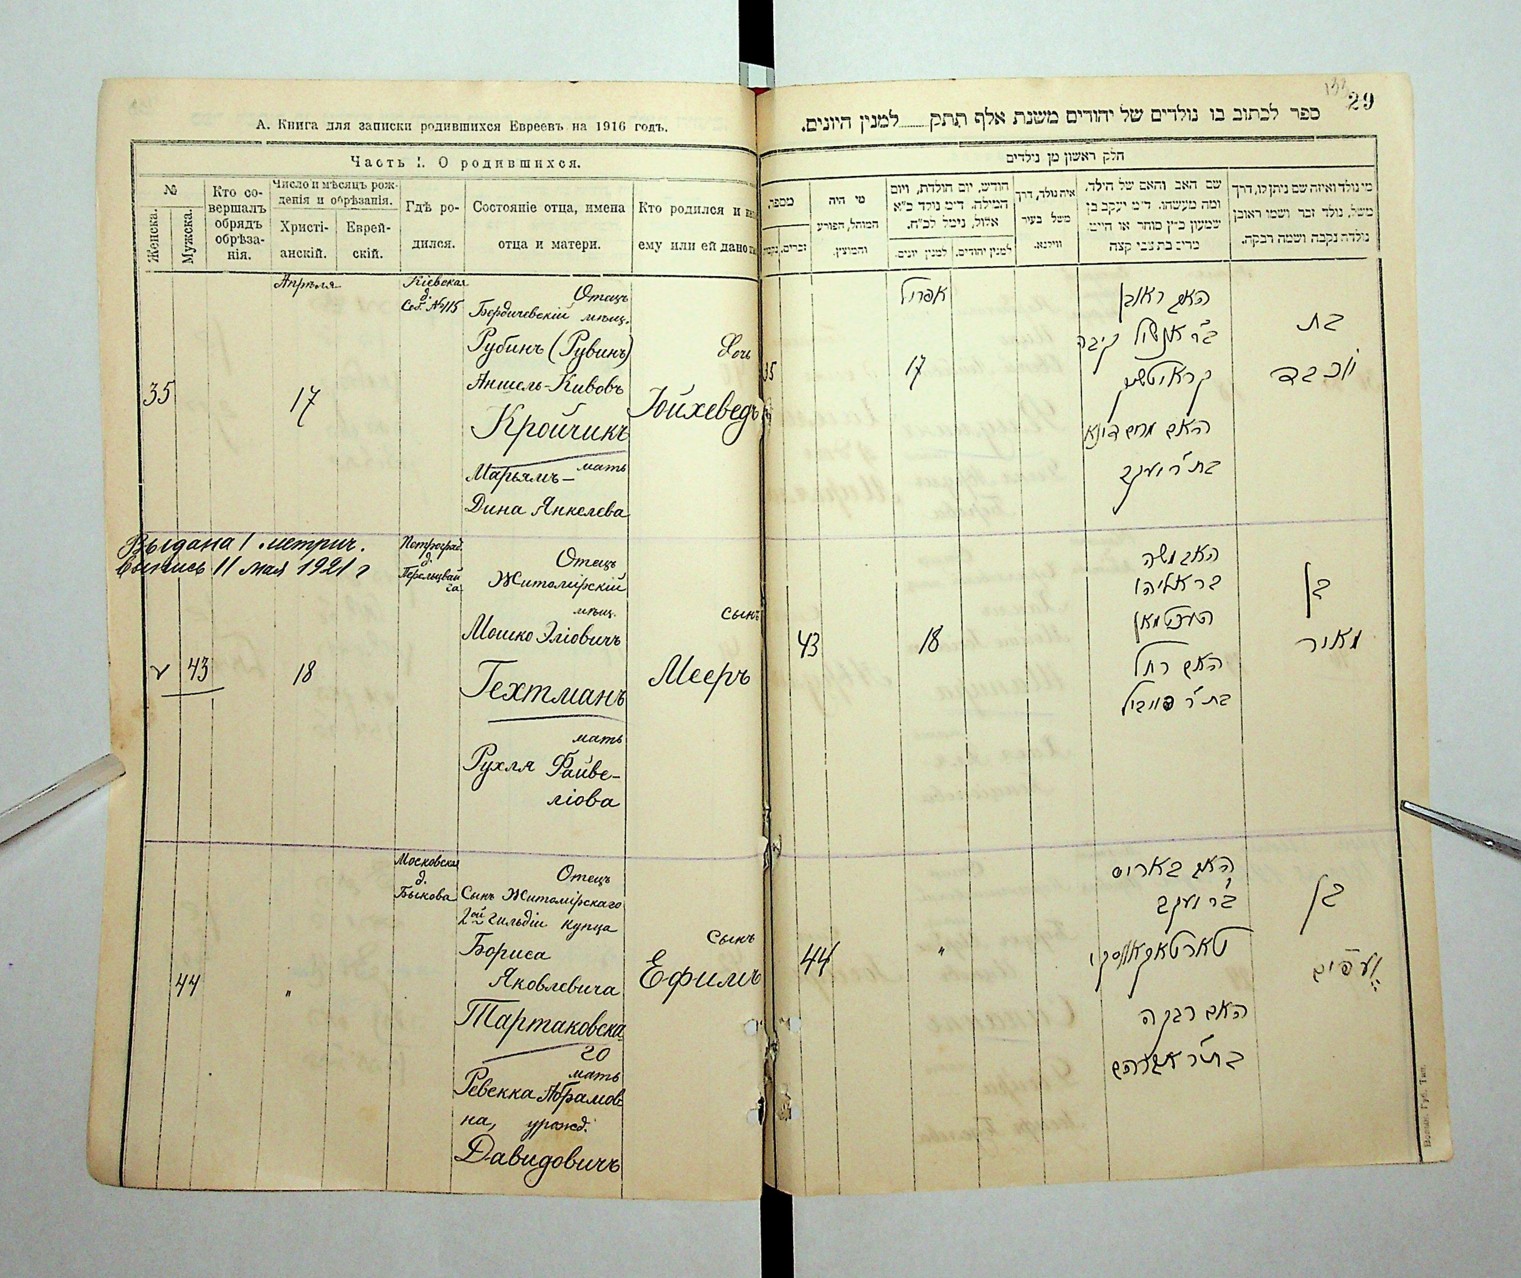 А. Книга для записки родившихся Евреевъ на 1916 годъ.
Часть I. О родившихся.
№
Женска.
Мужска.
Кто со-
вершалъ
обрядъ
обрѣза-
нія.
Число и мѣсяцъ рож-
денія и обрѣзанія.
Христі-
анскій.
Еврей-
скій.
Гдѣ ро-
дился.
Состояніе отца, имена
отца и матери.
Кто родился и
ему или ей дано
Апрѣля
35
17
Кіевская
д.
Отецъ
Бердичевскій мѣщ.
Рубинъ (Рувинъ)
Аншель-Кивовъ
Кройчикъ
мать
Марьямъ-
Дина Янкелева
Дочь
Іойхеведъ
Выдана 1 метрич.
Выпись 11 мая 1921 г
43
18
Петроград.
д.
Отецъ
Житомірскій
мѣщ.
Мошко Эліовичъ
Гехтманъ
мать
Рухля Файве-
ліова
Сынъ
Мееръ
44
"
Московская
д.
Быкова
Отецъ
Сынъ Житомірскаго
2ой гильдіи купца
Бориса
Яковлевича
Тартаковска
го
мать
Ревекка Абрамов
на, урожд.
Давидовичъ
Сынъ
Ефимъ
29
ספר לכתוב בו נולדים של יהודים משנת אלף תתק למנין היונים.
חלק ראשון מן נולדים
מספר,
זכרים.
מי היה
המוהל, הפורע
והמוצץ.
חודש, יום תולדת, ויום
המילה. ד״מ נולד כ״א
אלול, נימל לכ״ח.
למנין יונים.
למנין יהודים.
איה נולד, דרך
משל בעיר
ווילנא.
שם האב והאם של הילד,
ומה מעשהו. ד״מ יעקב בן
שמעון כ״ץ סוחר או חייט
מרים בת צבי קצה
מי נולד ואיזה שם ניתן לו, דרך
משל, נולד זכר ושמו ראובן
נולדה נקבה ושמה רבקה.
אפריל
35
17
האב ראובן
האם מרים דינא
בת ר׳ יעקב
בת
יוכבד
43
18
האב משה
בר אליהו
העכטמאן
האם רחל
בת ר׳ פייביל
בן
מאיר
44
"
האב באריס
בר יעקב
טארטאקאווסקי
האם רבקה
בת ר׳ אברהם
בן